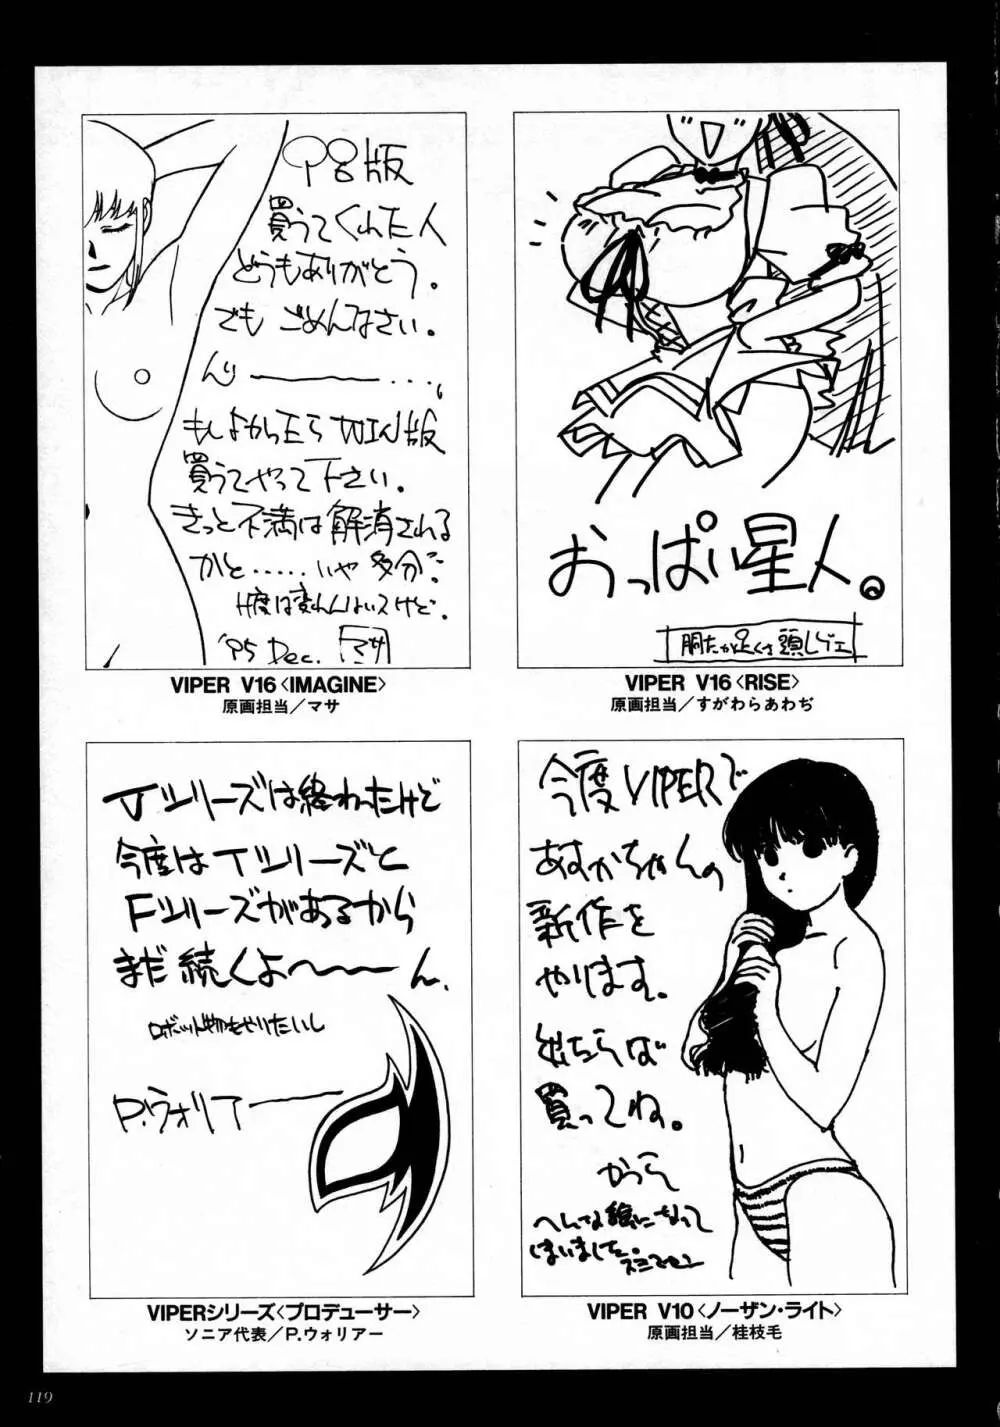 98版
買うてくれた人
どうもありがとう。
でも ごめんなさい。
ん〜――――...。
もしよかったら WIN版
買うてやって下さい。
きっと不満は解消される
かと.....いや 多分…。
H度は変わんないスけど。
'95 Dec. マサ
VIPER V16〈IMAGINE〉
原画担当／マサ
おっぱい星人。
VIPER V16〈RISE〉
原画担当／すがわらあわぢ
Jシリーズは終わったけど
今度はTシリーズと
Fシリーズがあるから
まだ続くよ〜――ん、
ロボット物もやりたいし
P.ウォリアー――
VIPERシリーズ〈プロデューサー〉
ソニア代表／P.ウォリアー
今度VIPERで
あすかちゃんの
新作を
やります。
出たらば
買ってね。
かつら
へんな絵になって
しまいました。
スミマセン
VIPER V10〈ノーザン・ライト〉
原画担当／桂枝毛
119